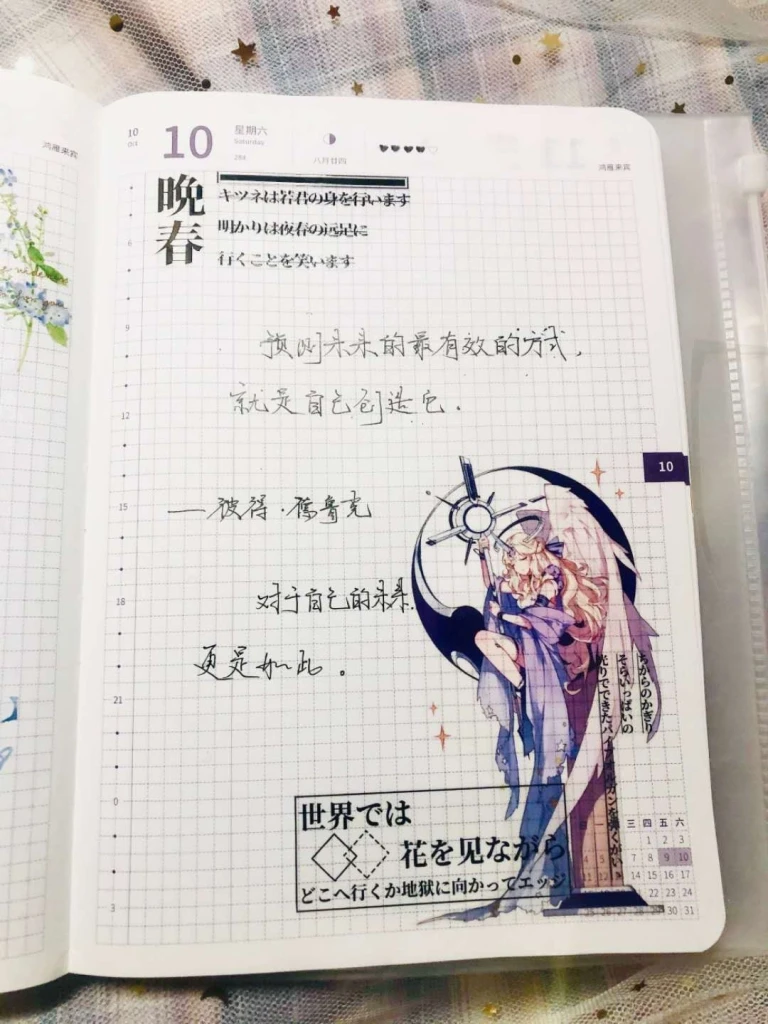 鸿雁来宾
10
Oct
10
星期六
Saturday
八月廿四
鸿雁来宾
晚春
キツネは若君の身を行います
明かりは夜春の远足に
行くことを笑います
6
9
12
15
18
21
0
3
预测未来的最有效的方式，
就是自己创造它.
——彼得·德鲁克
对于自己的未来.
更是如此。
10
ちからのかぎり
そらいっぱいの
光りでできたパイプオルガンを弾くがいゝ
世界では
花を见ながら
どこへ行くか地獄に向かってエッジ
三 四 五 六
1 2 3
4 5 7 8 9 10
11 12 14 15 16 17
22 23 24
25 26 27 28 29 30 31